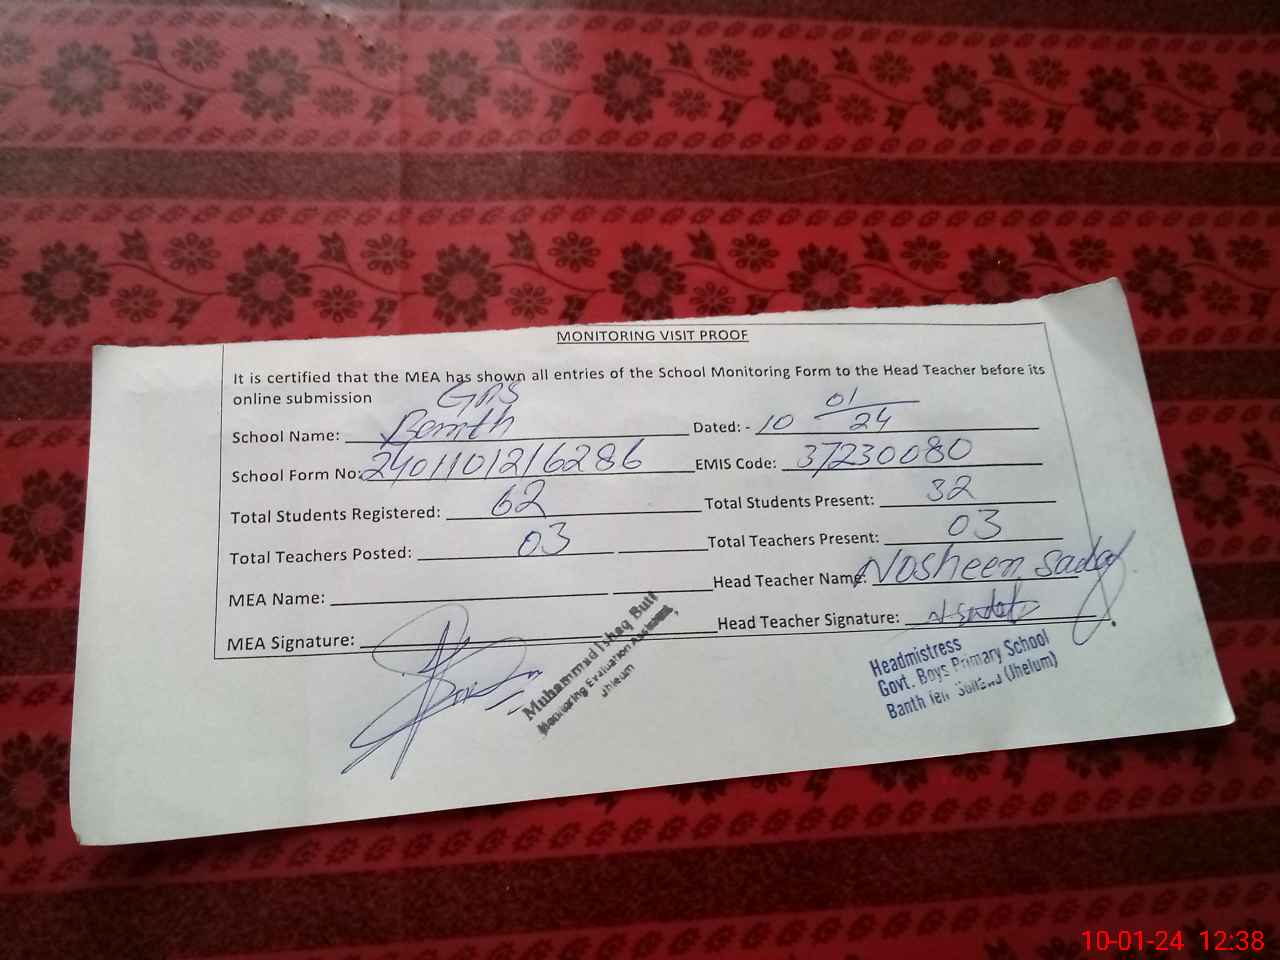 MONITORING VISIT PROOF
It is certified that the MEA has shown all entries of the School Monitoring Form to the Head Teacher before its
online submission
School Name: GPS Banth Dated: - 10 01/24
School Form No: 2401101216286 EMIS Code: 37230080
Total Students Registered: 62 Total Students Present: 32
Total Teachers Posted: 03 Total Teachers Present: 03
MEA Name: Head Teacher Name: Nosheen Sadaf
MEA Signature: Head Teacher Signature:
Muhammad Ishaq Butt
Monitoring Evaluation Assistant
Jhelum
Headmistress
Govt. Boys Primary School
Banth Teh (Jhelum)
10-01-24 12:38